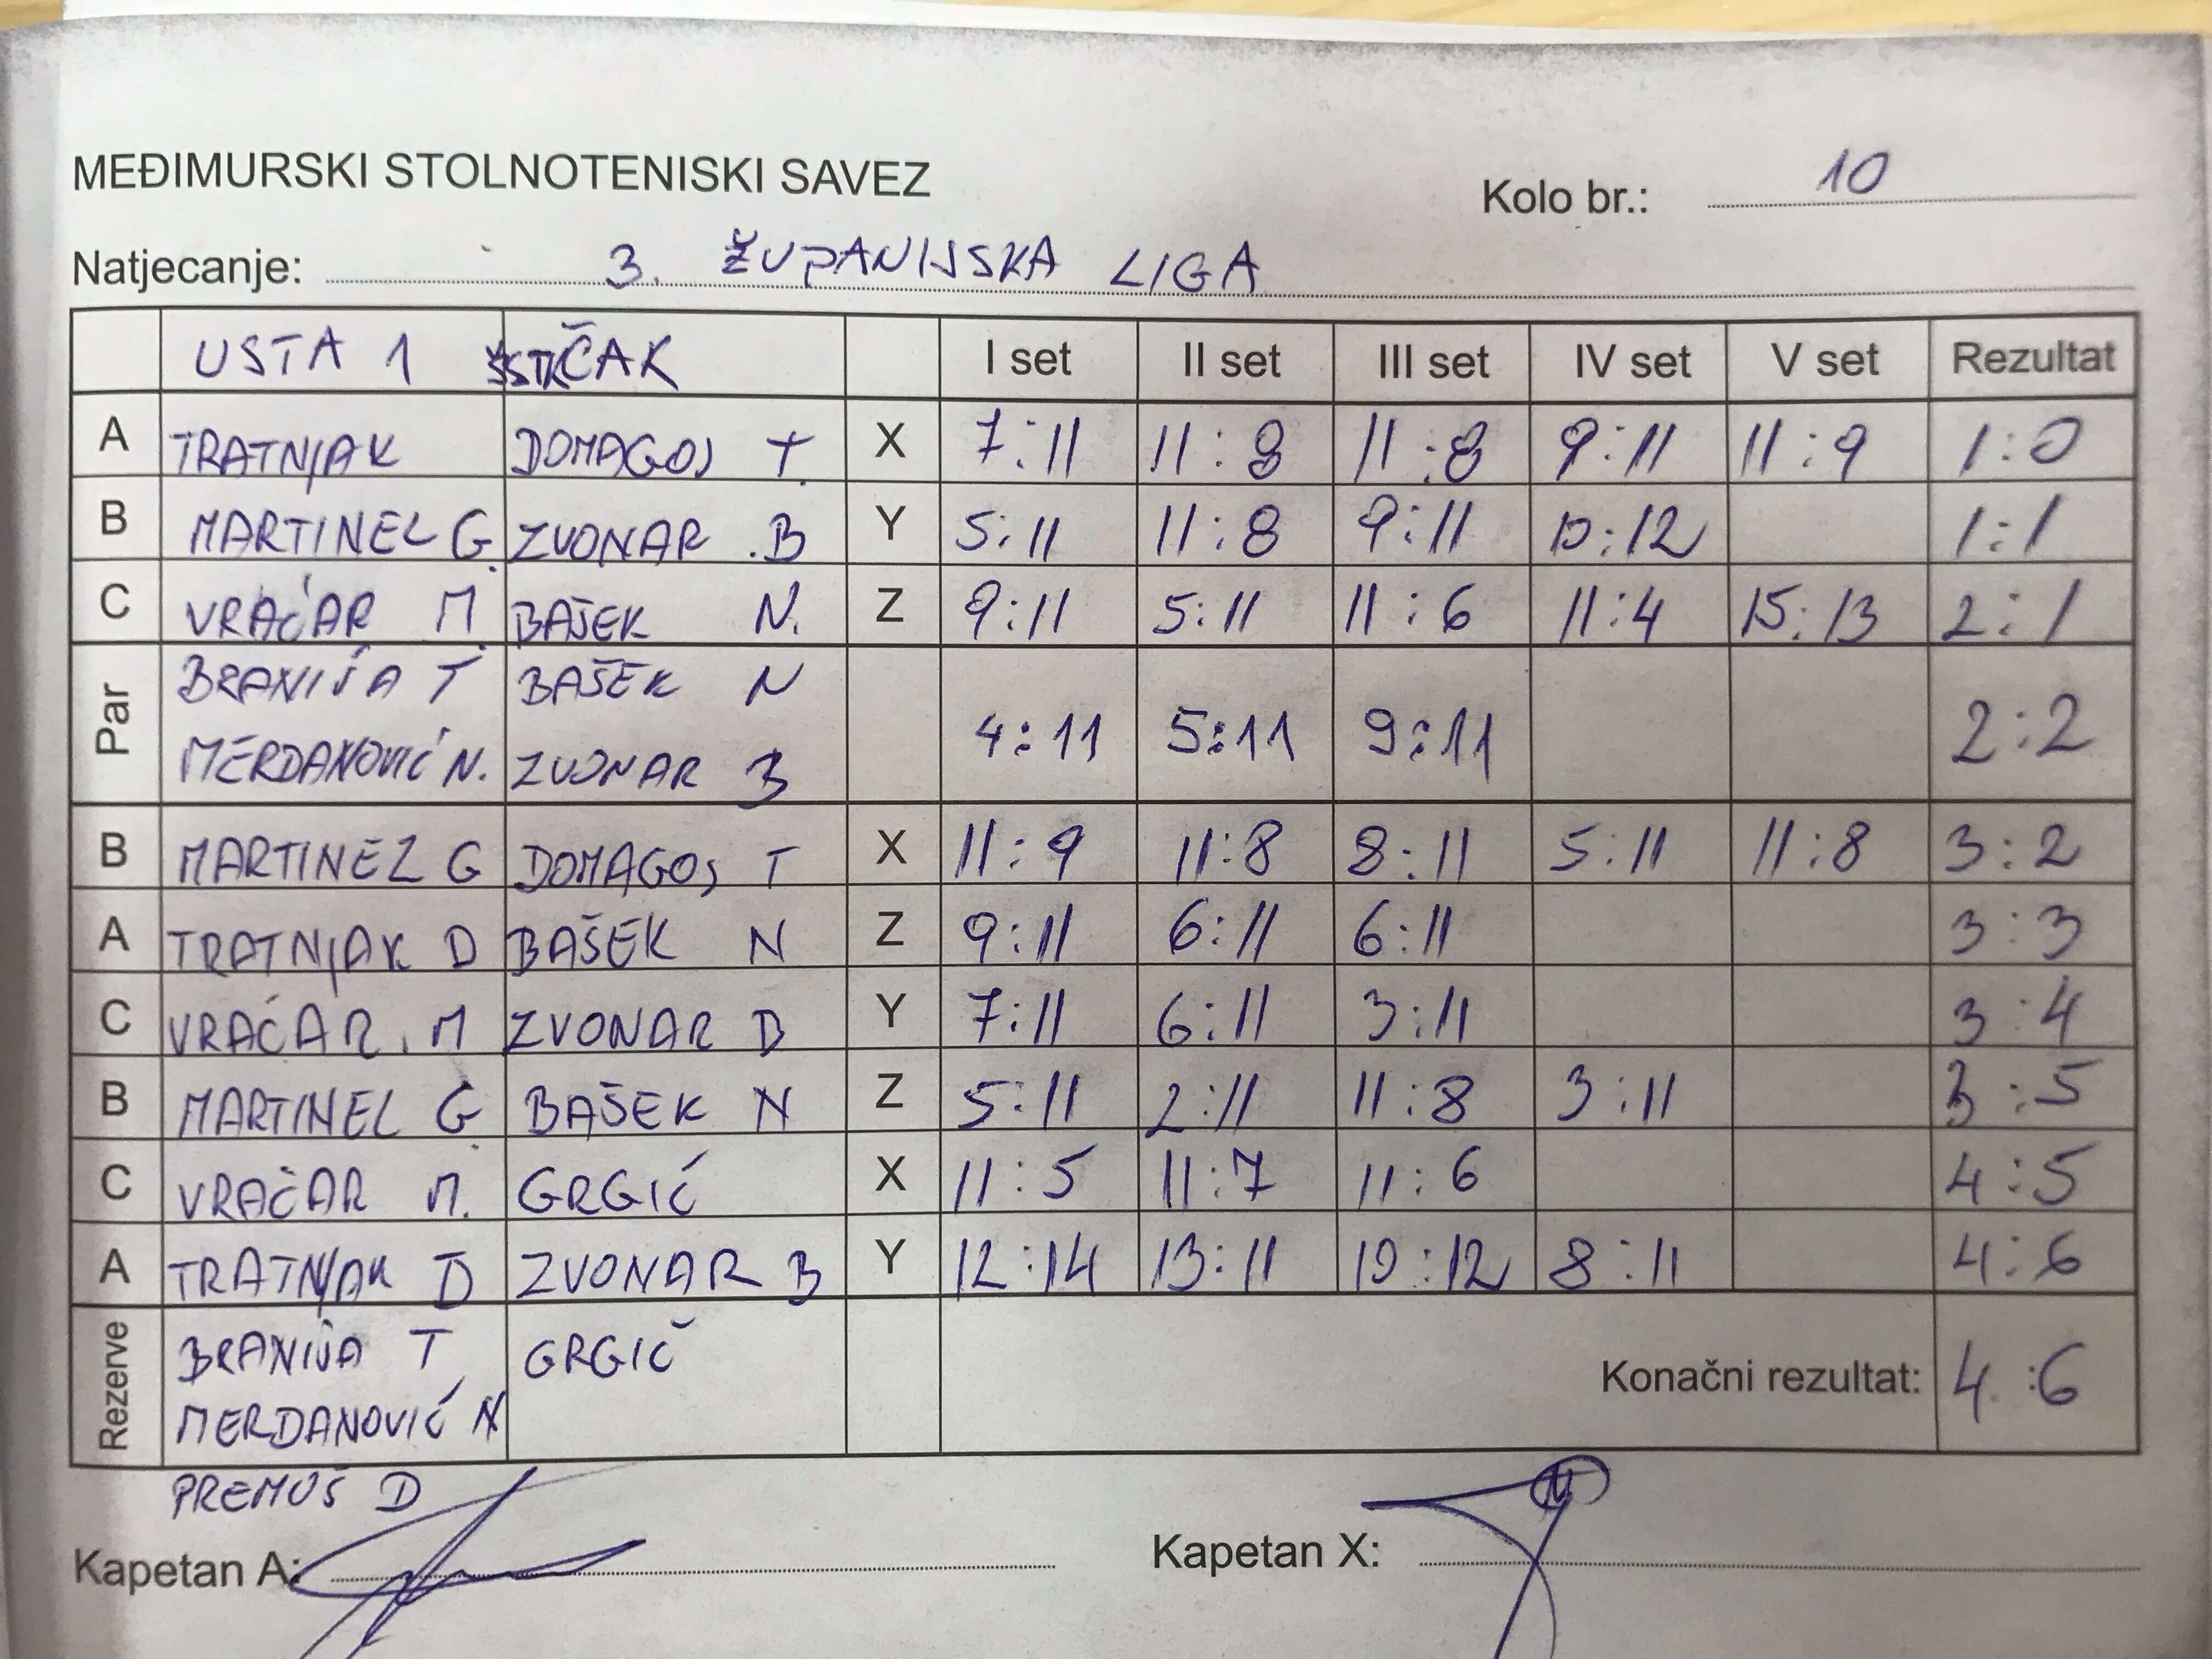 MEĐIMURSKI STOLNOTENISKI SAVEZ
Kolo br.: 10
Natjecanje: 3. ŽUPANIJSKA LIGA
USTA 1 ČAK I set II set III set IV set V set Rezultat
A TRATNJAK DOMAGOJ T. X 7:11 11:8 11:8 9:11 11:9 1:0
B MARTINEL G. ZVONAR .B Y 5:11 11:8 9:11 10:12 1:1
C VRAČAR M. BAŠEK N. Z 9:11 5:11 11:6 11:4 15:13 2:1
Par BRANIŠA T BAŠEK N
MERDANOVIĆ N. ZVONAR B 4:11 5:11 9:11 2:2
B MARTINEZ G DOMAGOJ T X 11:9 11:8 8:11 5:11 11:8 3:2
A TRATNJAK D BAŠEK N Z 9:11 6:11 6:11 3:3
C VRAČAR. M ZVONAR B Y 7:11 6:11 3:11 3:4
B MARTINEL G. BAŠEK N Z 5:11 2:11 11:8 3:11 3:5
C VRAČAR M. GRGIĆ X 11:5 11:7 11:6 4:5
A TRATNJAK D ZVONAR B Y 12:14 13:11 10:12 8:11 4:6
Rezerve BRANIŠA T GRGIČ
MERDANOVIĆ N
Konačni rezultat: 4:6
PREMUŠ D
Kapetan A:
Kapetan X: